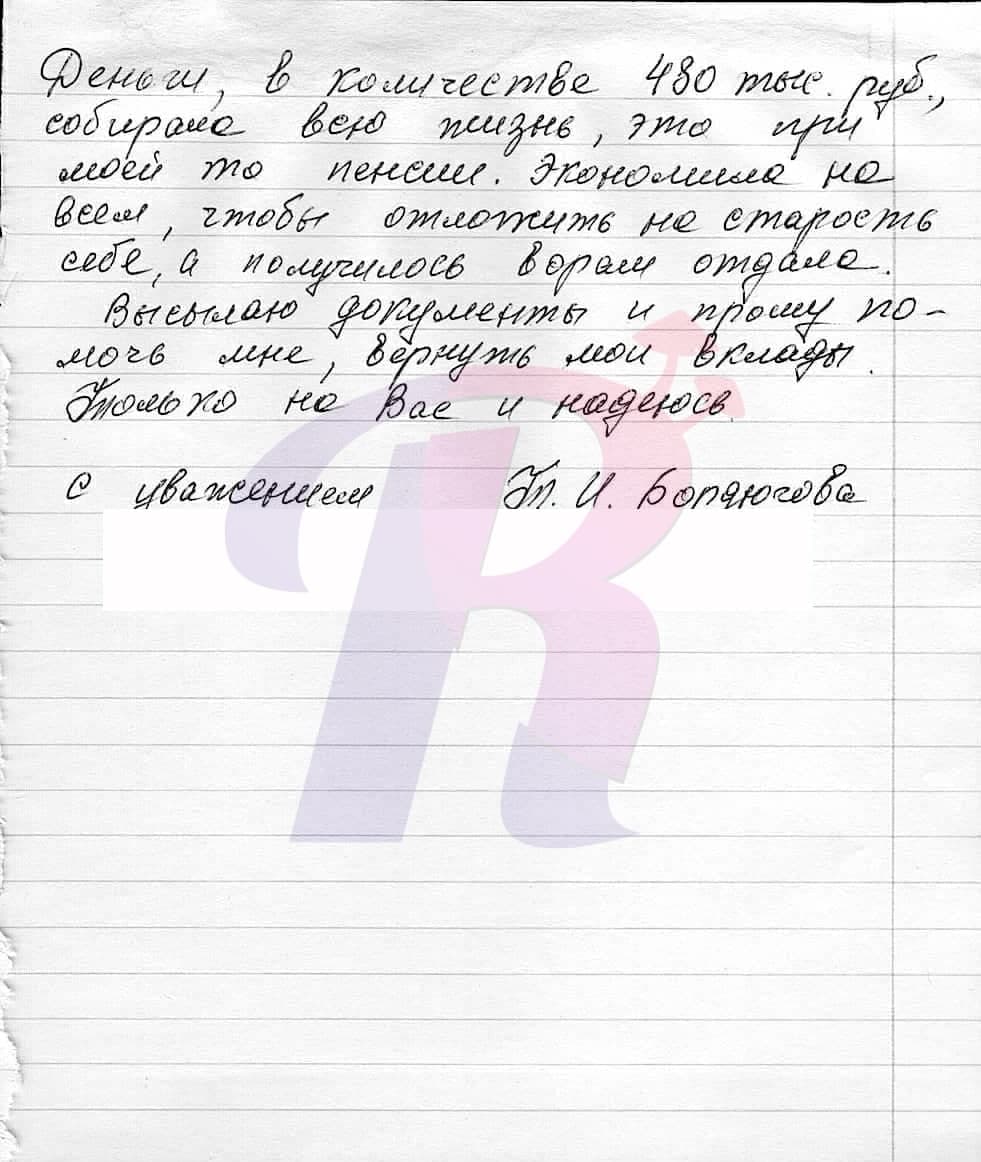 Деньги, в количестве 480 тыс. руб.,
собирала всю жизнь, это при
моей то пенсии. Экономила на
всем, чтобы отложить на старость
себе, а получилось ворам отдала.
Высылаю документы и прошу по-
мочь мне, вернуть мои вклады.
Только на Вас и надеюсь.
С уважением Т. И. Бордюгова